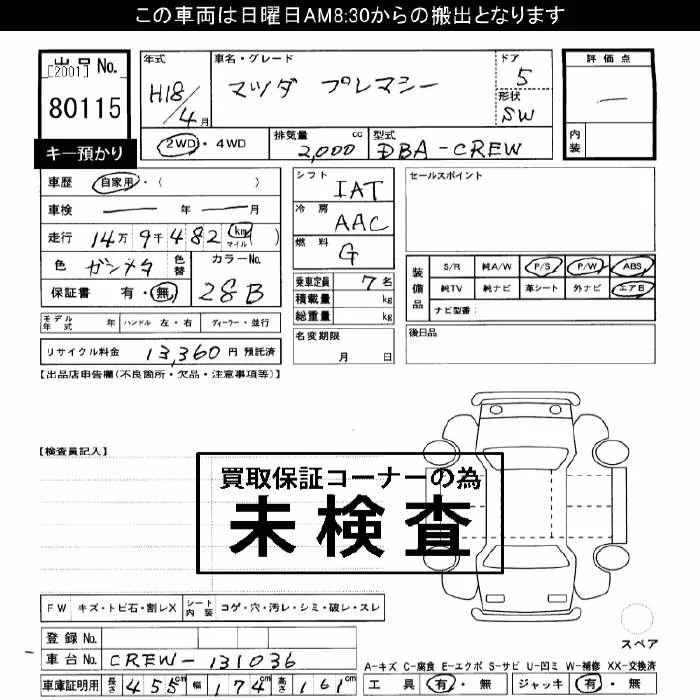 この車両は日曜日AM8:30からの搬出となります
出品No.
[2001]
80115
キー預かり
年式 H18/4月
車名・グレード マツダ プレマシー
ドア 5
形状 SW
評価点 —
内装
2WD・4WD
排気量 2,000 cc
型式 DBA-CREW
車歴 自家用・( )
車検 — 年 — 月
走行 14万9千482 (km マイル)
色 ガンメタ 色替
カラーNo. 28B
保証書 有・無
シフト IAT
冷房 AAC
燃料 G
乗車定員 7名
積載量 kg
総重量 kg
名変期限 月 日
セールスポイント
装備品
S/R 純A/W P/S P/W ABS
純TV 純ナビ 革シート 外ナビ エアB
ナビ型番:
後日品
モデル年式 年 ハンドル 左・右 ディーラー・並行
リサイクル料金 13,360 円 預託済
【出品店申告欄(不良箇所・欠品・注意事項等)】
【検査員記入】
買取保証コーナーの為
未検査
FW キズ・トビ石・割レX シート内装 コゲ・穴・汚レ・シミ・破レ・スレ
登録No.
車台No. CREW-131036
車庫証明用 長さ 455cm 幅 174cm 高さ 161cm
スペア
A-キズ C-腐食 E-エクボ S-サビ U-凹ミ W-補修 XX-交換済
工具 有・無 ジャッキ 有・無